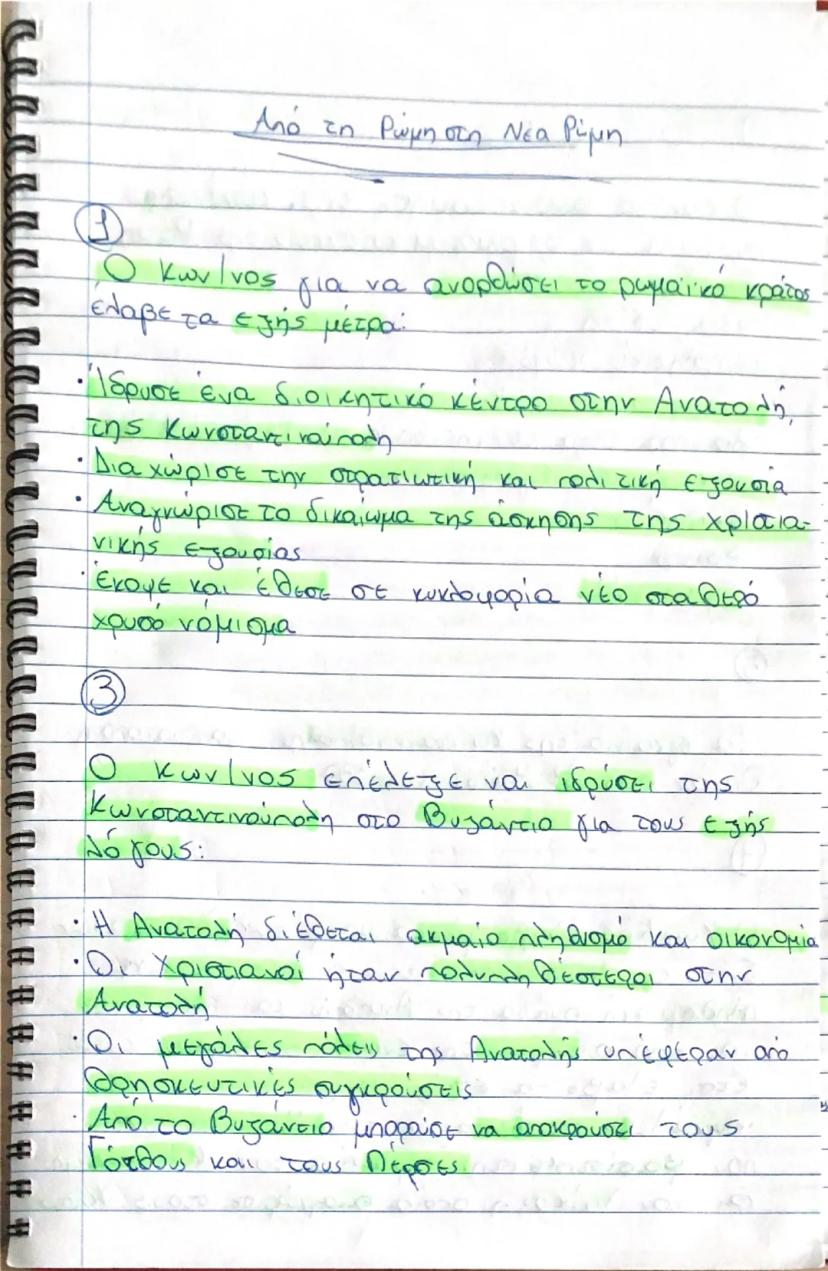 Από τη Ρώμη στη Νέα Ρώμη
1
Ο Κων/νος για να ανορθώσει το ρωμαϊκό κράτος
έλαβε τα εξής μέτρα:
· Ίδρυσε ένα διοικητικό κέντρο στην Ανατολή,
της Κωνσταντινούπολη
· Διαχώρισε την στρατιωτική και πολιτική εξουσία
· Αναγνώρισε το δικαίωμα της άσκησης της χριστια-
νικής εξουσίας
· Έκοψε και έθεσε σε κυκλοφορία νέο σταθερό
χρυσό νόμισμα
3
Ο Κων/νος επέλεξε να ιδρύσει της
Κωνσταντινούπολη στο Βυζάντιο για τους εξής
λόγους:
· Η Ανατολή διέθεται ακμαίο πληθυσμό και οικονομία
· Οι Χριστιανοί ήταν πολυπληθέστεροι στην
Ανατολή
· Οι μεγάλες πόλεις της Ανατολής υπέφεραν από
θρησκευτικές συγκρούσεις
· Από το Βυζάντιο μπορούσε να αποκρούσει τους
Γότθους και τους Πέρσες